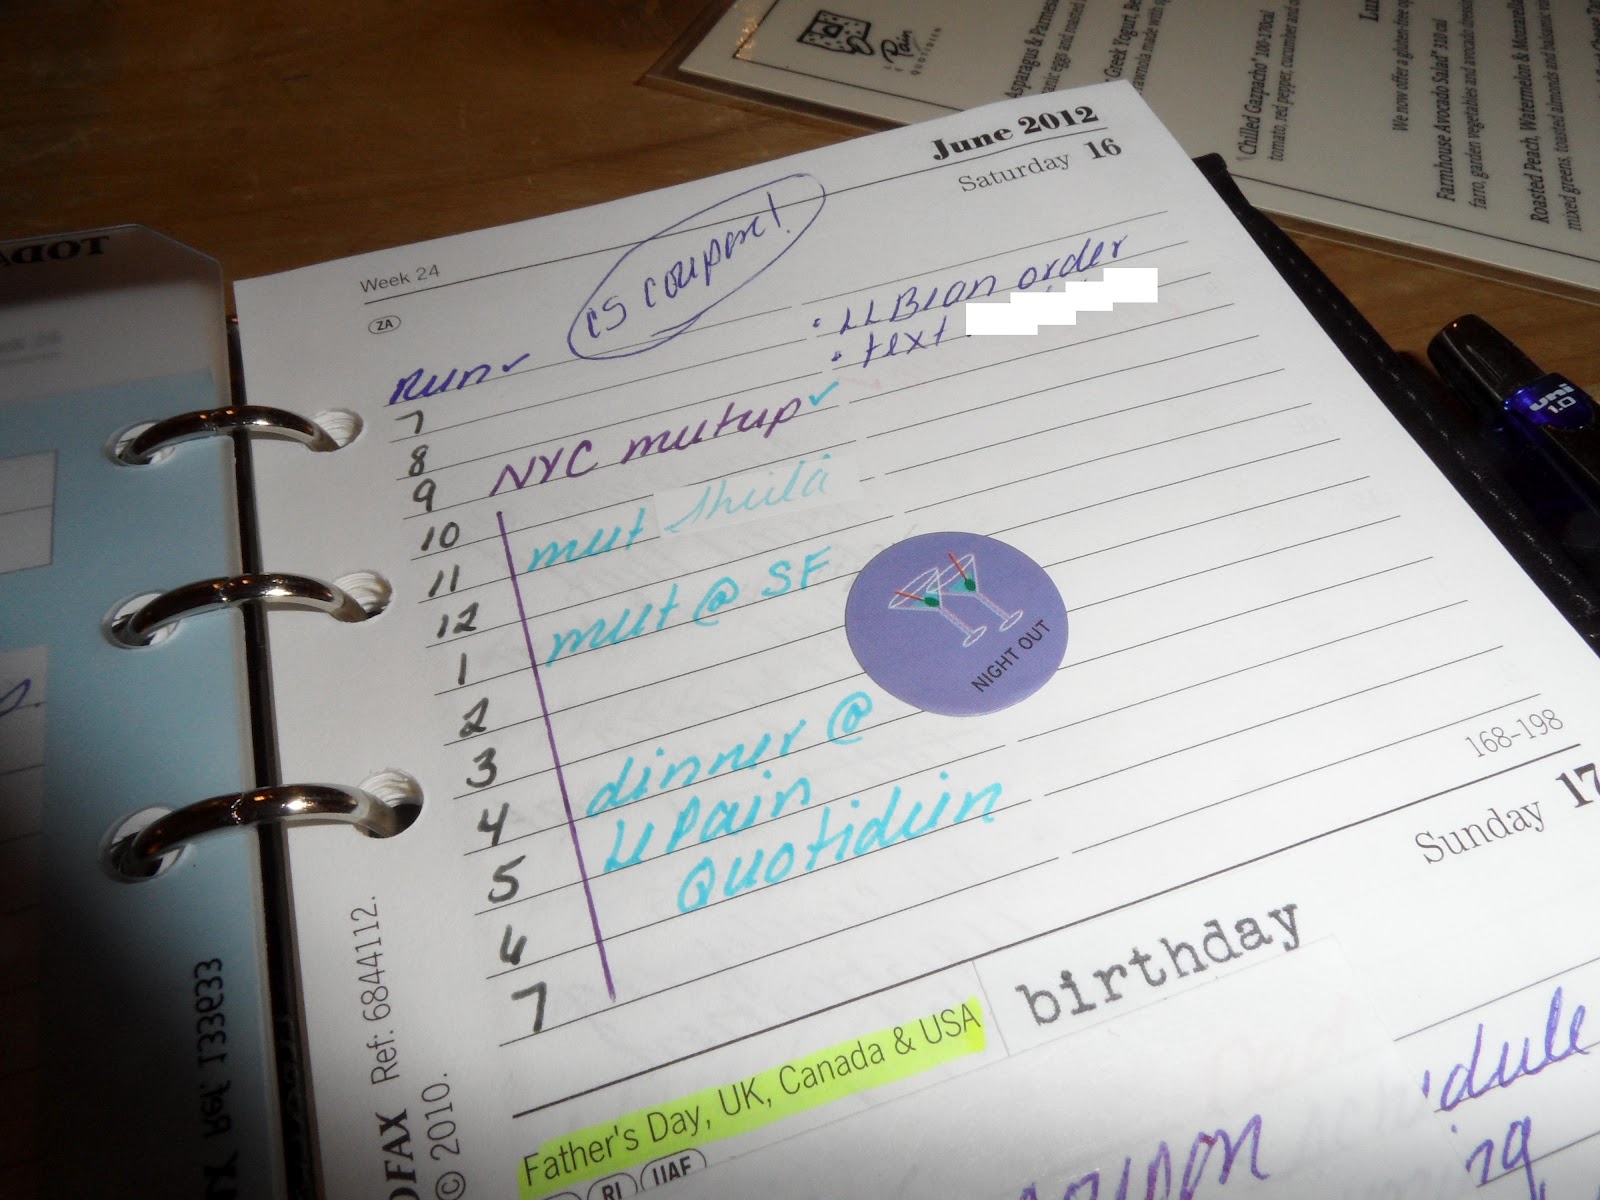 Pain
QUOTIDIEN
Asparagus & Parmesa
Greek Yogurt, Be
Lun
We now offer a gluten-free op
Farmhouse Avocado Salad* 310 cal
farro, garden vegetables and avocado dressi
Chilled Gazpacho* 100-170cal
tomato, red pepper, cucumber and
Roasted Peach, Watermelon & Mozzarella
mixed greens, toasted almonds and balsamic vin
June 2012
Saturday 16
Week 24
ZA
CS coupon!
• LL Bean order
• text
Run ✓
7
8
NYC meetup ✓
9
10
meet Sheila
11
12
meet @ SF
1
2
NIGHT OUT
3
dinner @
4
Le Pain
5
Quotidien
6
7
168-198
Sunday 17
birthday
Father's Day, UK, Canada & USA
RI UAE
dule
oupon
ng
OFAX Ref: 6844112.
© 2010.
TODA
Ref 133633
uni
1.0